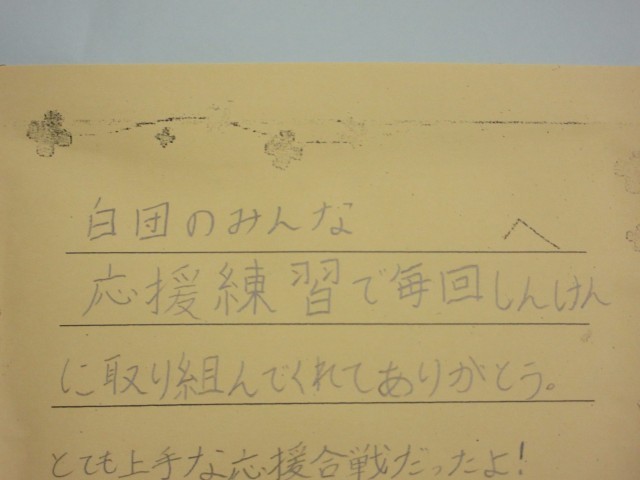 白団のみんな へ
応援練習で毎回しんけん
に取り組んでくれてありがとう。
とても上手な応援合戦だったよ!